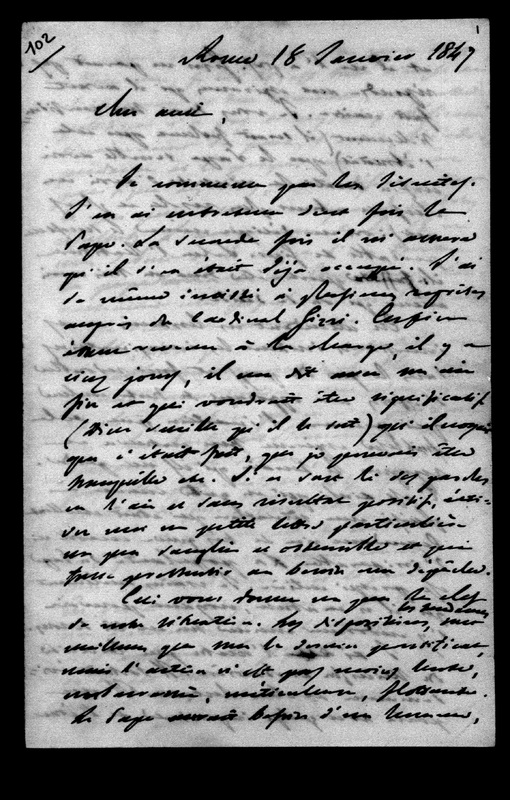 102
1
Rome 18 Janvier 1847
Cher ami,
Je commence par les Jésuites.
J'en ai entretenu deux fois le
Pape. La seconde fois il m'assura
qu'il s'en était déjà occupé. J'ai
de même insisté à plusieurs reprises
auprès du Cardinal Gizzi. Enfin
étant revenu à la charge, il y a
cinq jours, il me dit avec un air
fin et qui voudrait être significatif
(Dieu veuille qu'il le soit) qu'il
que c'était fait, que je pouvais être
tranquille etc. Si ce sont là des paroles
en l'air et sans résultat positif, écri-
vez moi une petite lettre particulière
un peu et ostensible et qui
puisse au besoin une dépêche.
Ceci vous donne un peu la clef
de notre situation. Les dispositions, les tendances sont
meilleures que sous le dernier pontificat,
mais l'action n'est pas moins lente,
embarrassée, méticuleuse, flottante.
Le Pape aurait besoin d'un homme,